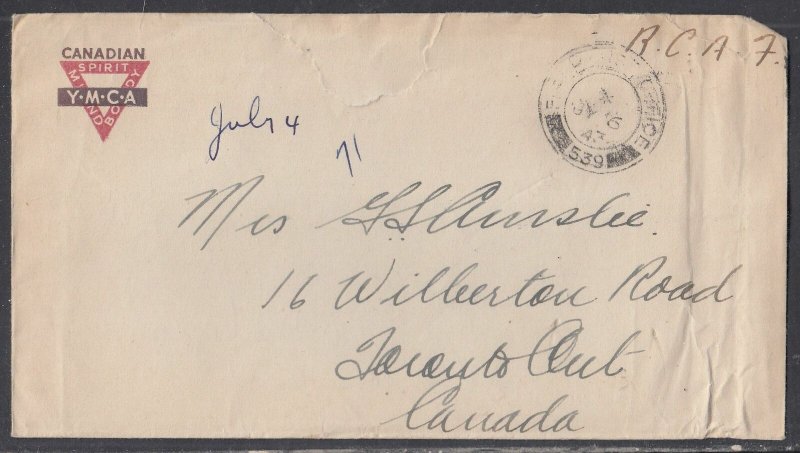 CANADIAN
SPIRIT
MIND
BODY
Y·M·C·A
R.C.A.F.
FIELD POST OFFICE
16
43
539
July 4
71
Mrs G S Ainslie.
16 Wilberton Road
Toronto Ont
Canada